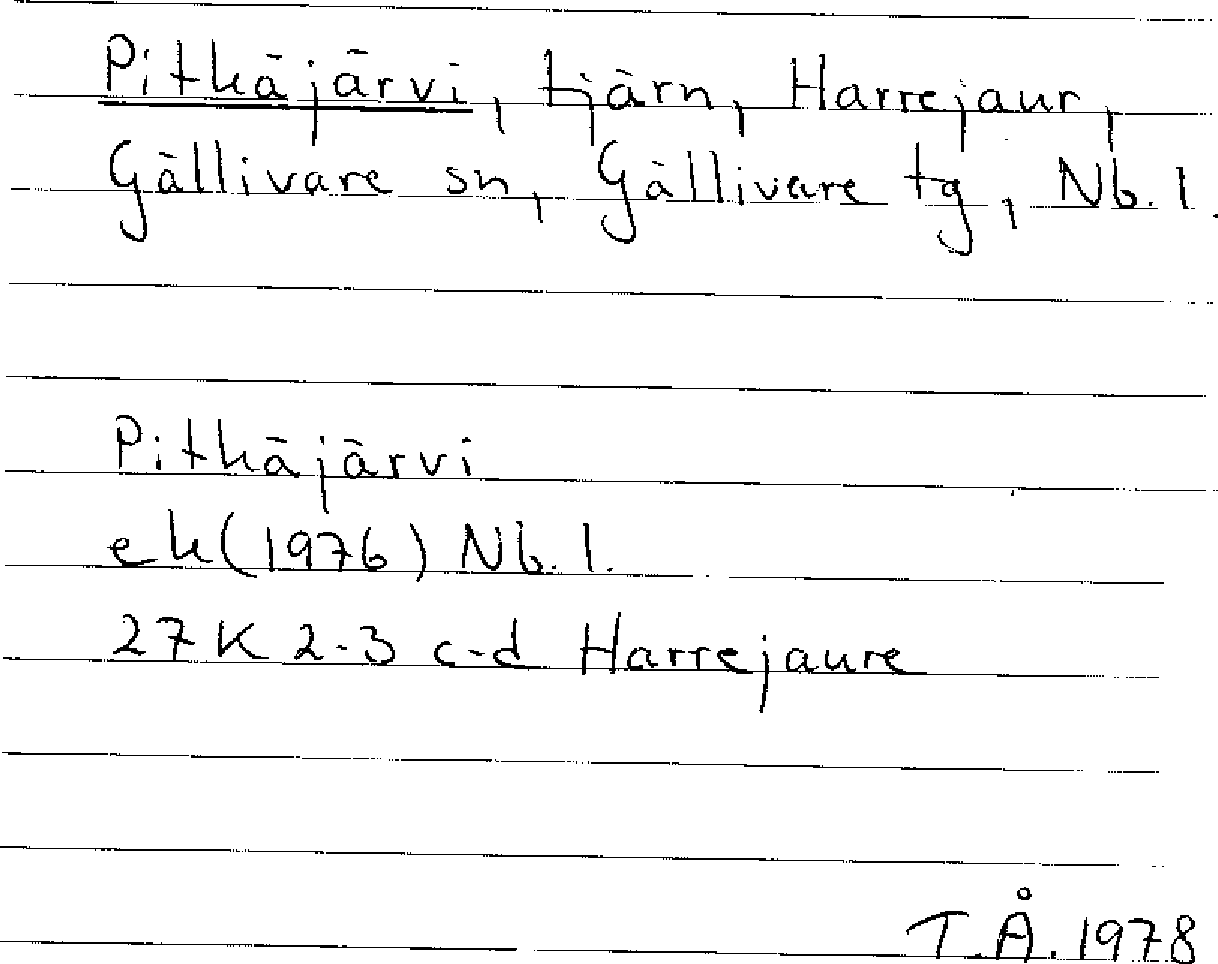 Pitkäjärvi, tjärn, Harrejaur,
Gällivare sn, Gällivare tg, Nb. l.
Pitkäjärvi
ek (1976) Nb. l.
27K 2-3 c-d Harrejaure
T.Å. 1978